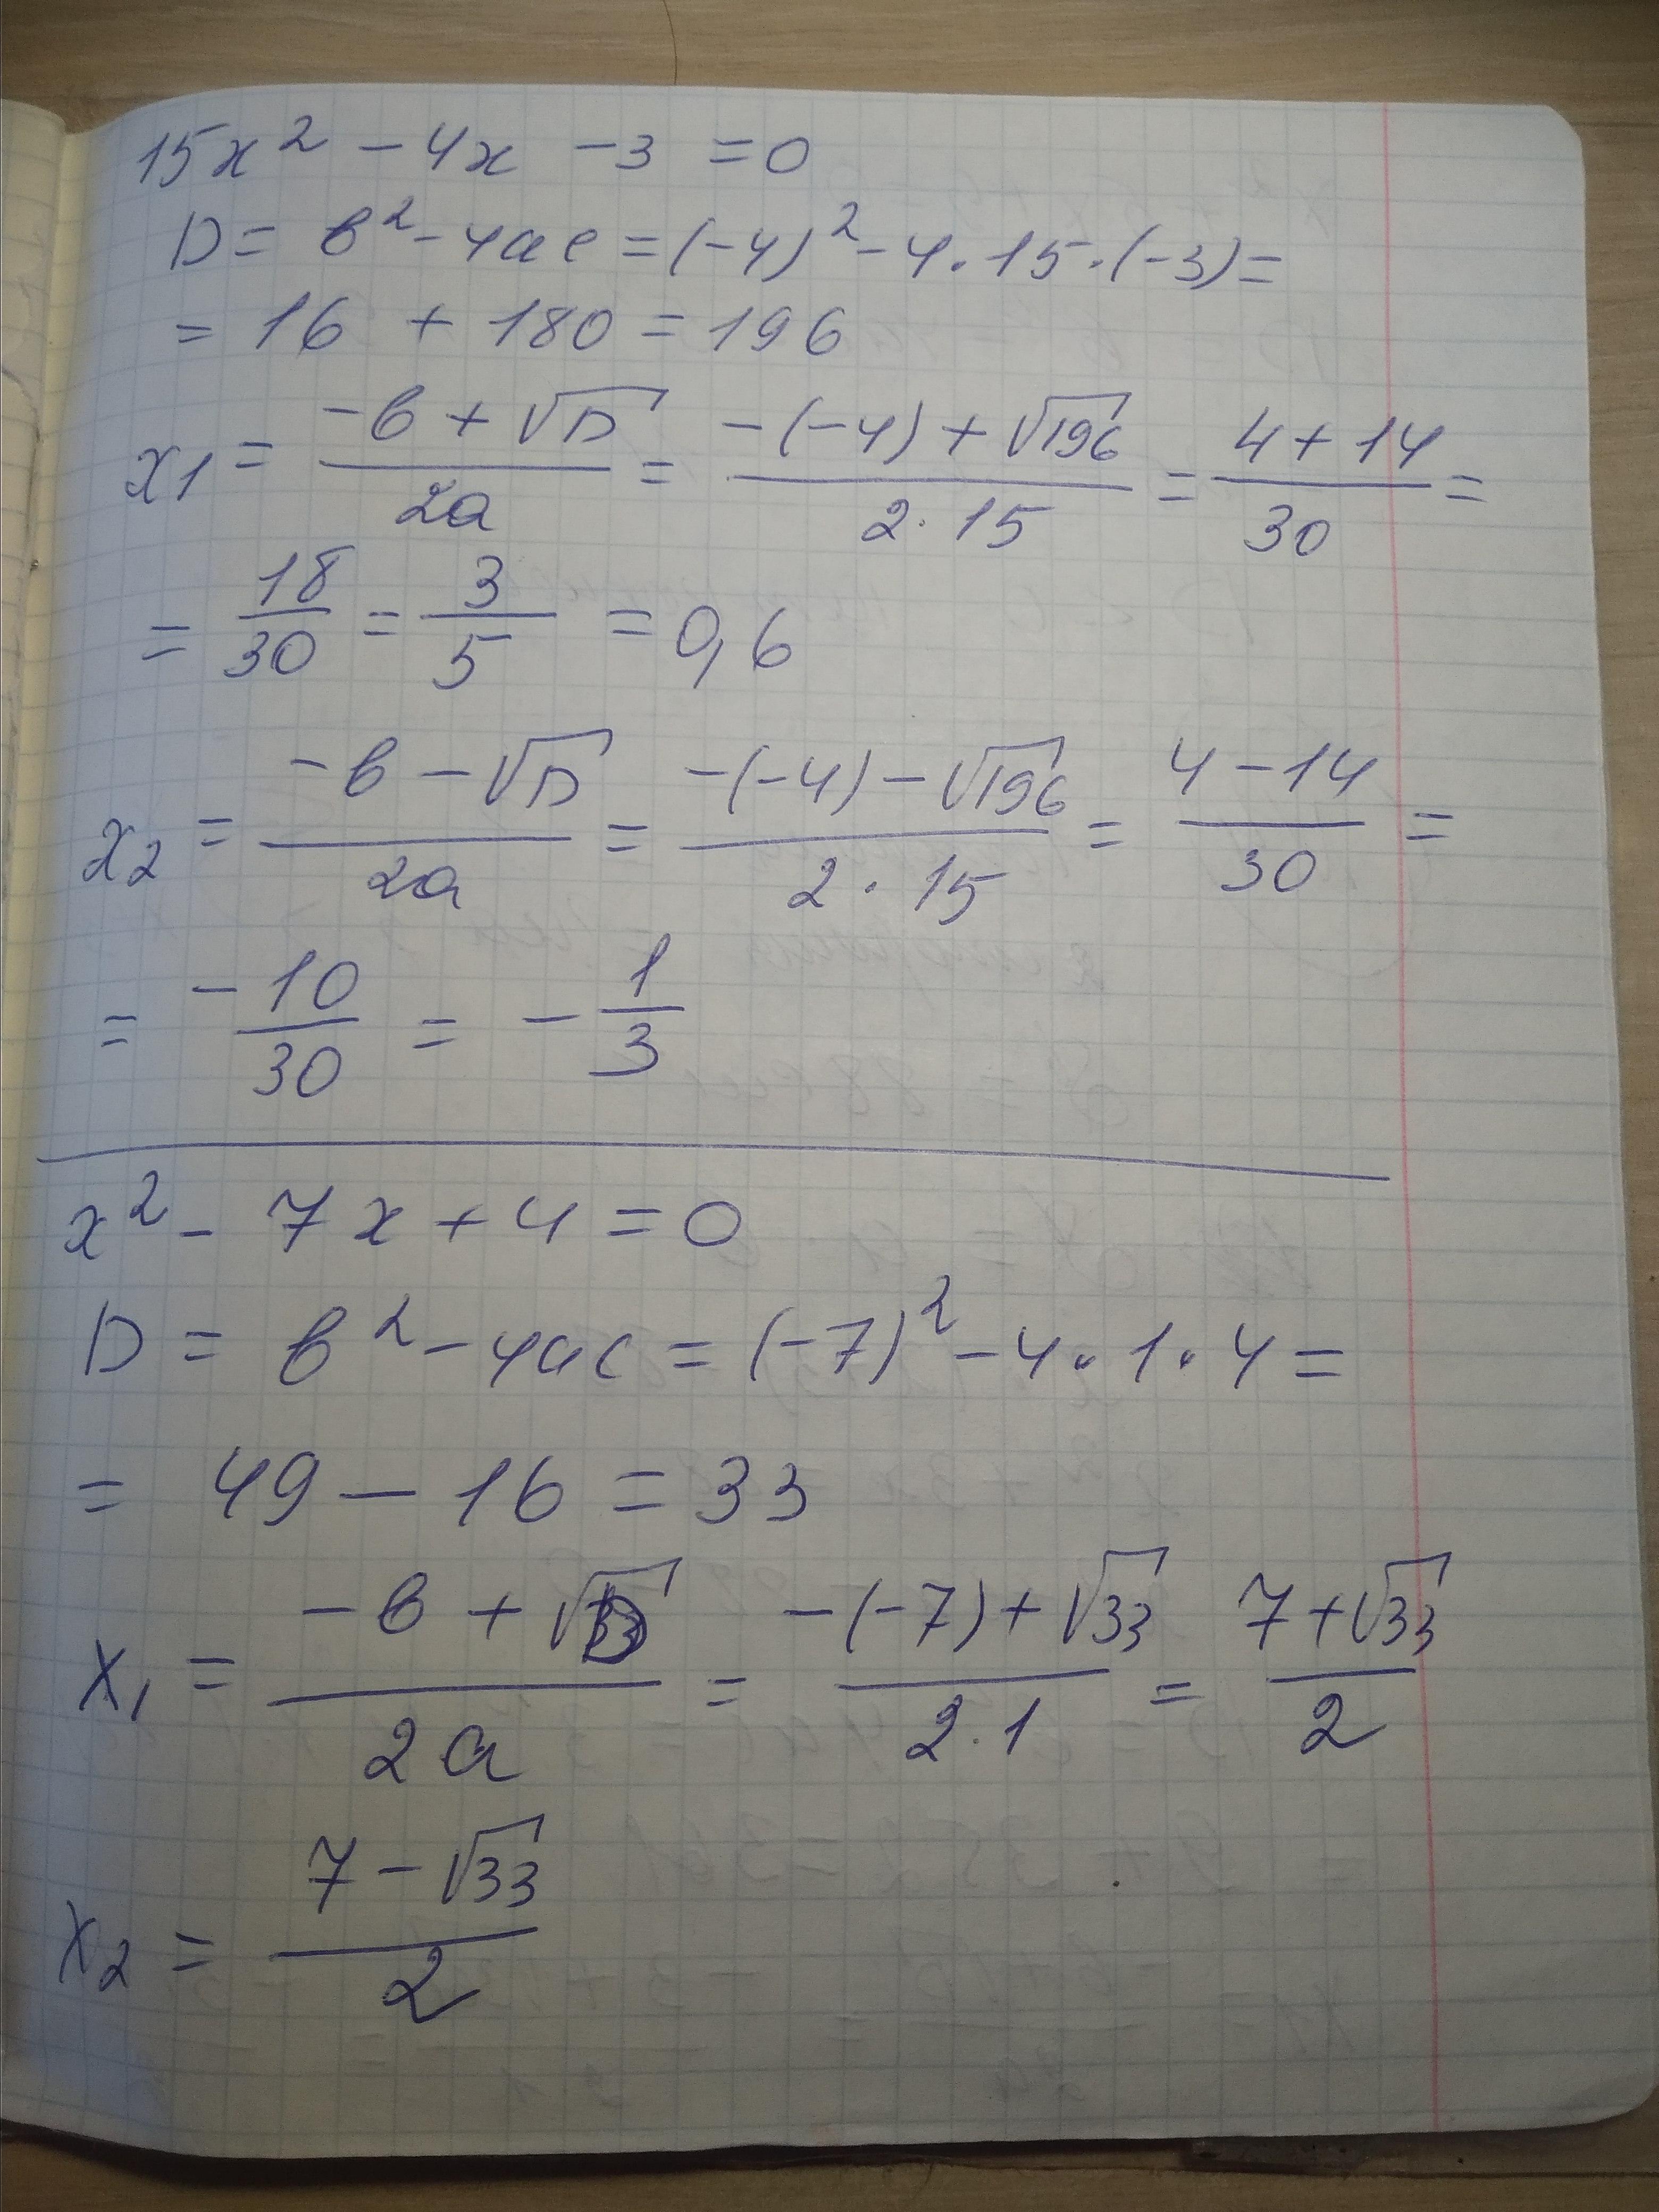 15x² - 4x - 3 = 0
D = в² - 4ac = (-4)² - 4·15·(-3) =
= 16 + 180 = 196
x1 = (-в + √D)/(2a) = (-(-4) + √196)/(2·15) = (4 + 14)/30 =
= 18/30 = 3/5 = 0,6
x2 = (-в - √D)/(2a) = (-(-4) - √196)/(2·15) = (4 - 14)/30 =
= -10/30 = -1/3
x² - 7x + 4 = 0
D = в² - 4ac = (-7)² - 4·1·4 =
= 49 - 16 = 33
x₁ = (-в + √D)/(2a) = (-(-7) + √33)/(2·1) = (7 + √33)/2
x₂ = (7 - √33)/2